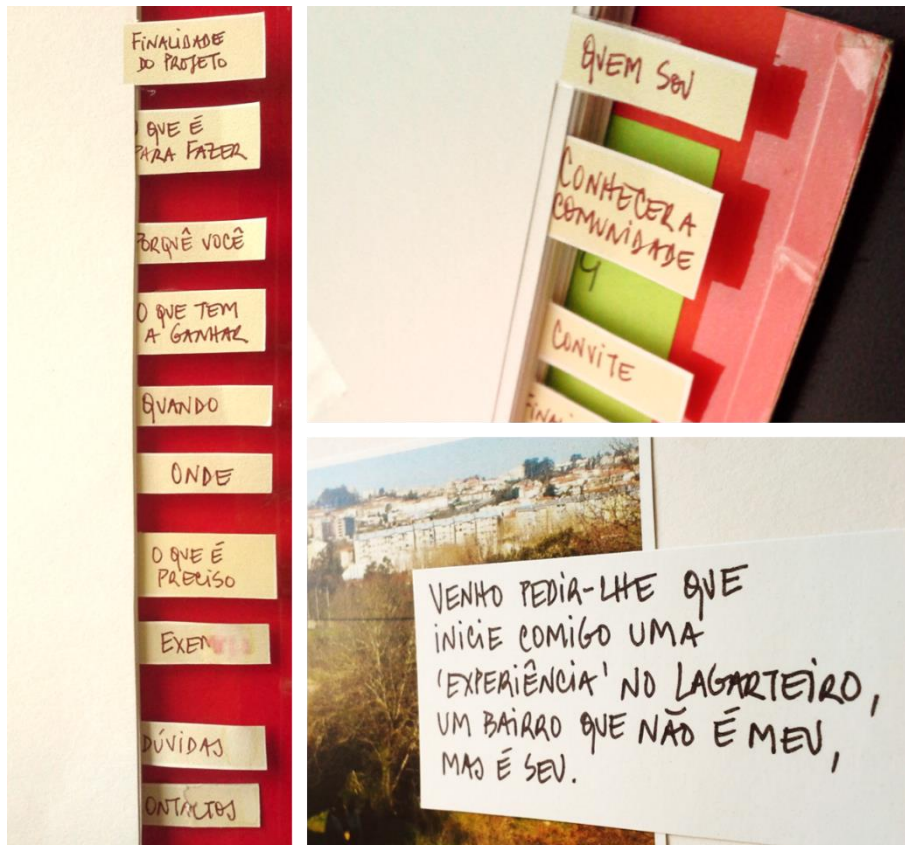 FINALIDADE
DO PROJETO
O QUE É
PARA FAZER
PORQUÊ VOCÊ
O QUE TEM
A GANHAR
QUANDO
ONDE
O QUE É
PRECISO
EXEM
DÚVIDAS
CONTACTOS
QUEM SOU
CONHECER A
COMUNIDADE
CONVITE
FINALI
VENHO PEDIR-LHE QUE
INICIE COMIGO UMA
'EXPERIÊNCIA' NO LAGARTEIRO,
UM BAIRRO QUE NÃO É MEU,
MAS É SEU.